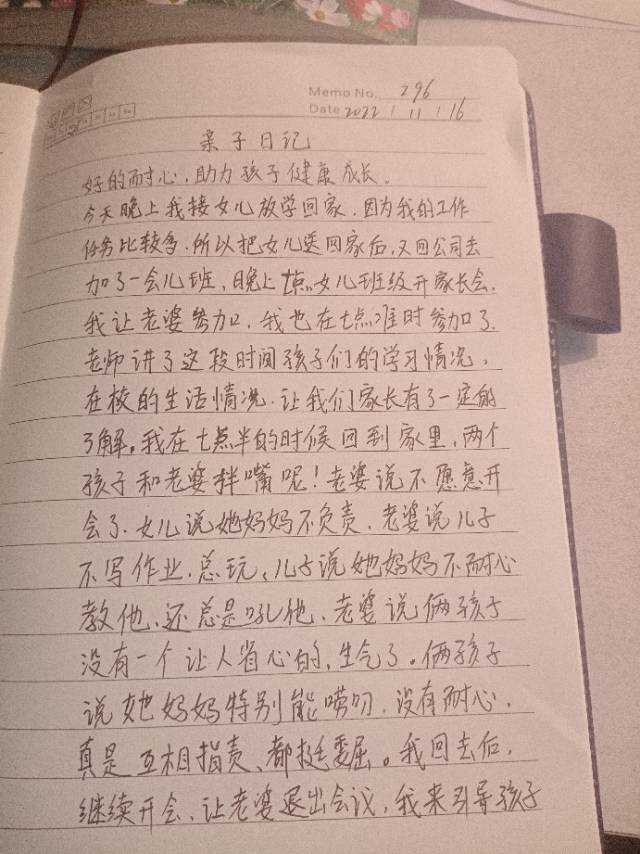 Memo No. 296
Date 2022 / 11 / 16
亲子日记
好的耐心，助力孩子健康成长。
今天晚上我接女儿放学回家，因为我的工作
任务比较多，所以把女儿送回家后，又回公司去
加了一会儿班，晚上七点，女儿班级开家长会，
我让老婆参加，我也在七点准时参加了，
老师讲了这段时间孩子们的学习情况，
在校的生活情况，让我们家长有了一定的
了解。我在七点半的时候回到家里，两个
孩子和老婆拌嘴呢！老婆说不愿意开
会了，女儿说她妈妈不负责，老婆说儿子
不写作业，总玩，儿子说她妈妈不耐心
教他，还总是吼他，老婆说俩孩子
没有一个让人省心的，生气了。俩孩子
说她妈妈特别能唠叨，没有耐心，
真是互相指责、都挺委屈。我回去后，
继续开会，让老婆退出会议，我来引导孩子